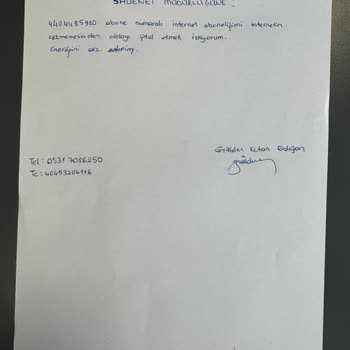 SADENET MÜDÜRLÜĞÜNE;
4404485910 abone numaralı internet aboneliğimi internetin
çekmemesinden dolayı iptal etmek istiyorum.
Gereğini arz ederim.
Kıtan Erdoğan
Tel: 0531 7086250
Tc: 40453204116